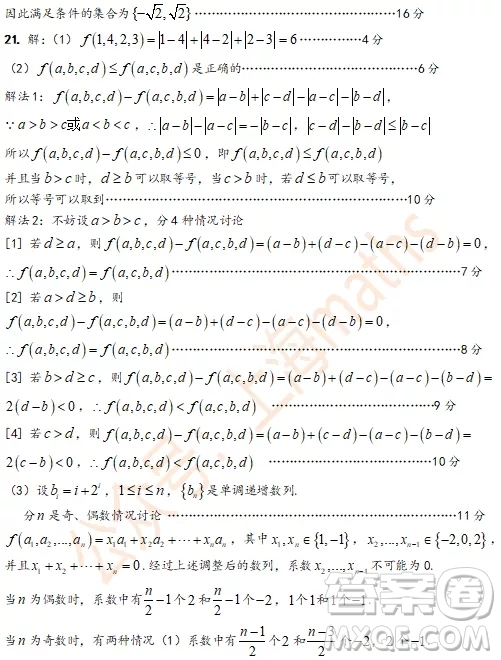 因此满足条件的集合为{-√2, √2}⋯⋯⋯⋯⋯⋯⋯⋯⋯⋯⋯⋯16分
21. 解：（1） f(1,4,2,3)=|1-4|+|4-2|+|2-3|=6⋯⋯⋯⋯⋯4分
（2） f(a,b,c,d)≤f(a,c,b,d)是正确的⋯⋯⋯⋯⋯⋯⋯⋯⋯⋯6分
解法1：f(a,b,c,d)-f(a,c,b,d)=|a-b|+|c-d|-|a-c|-|b-d|，
∵a>b>c或a<b<c，∴|a-b|-|a-c|=-|b-c|，|c-d|-|b-d|≤|b-c|
所以f(a,b,c,d)-f(a,c,b,d)≤0，即f(a,b,c,d)≤f(a,c,b,d)
并且当b>c时，d≥b可以取等号，当c>b时，若d≤b可以取等号，
所以等号可以取到⋯⋯⋯⋯⋯⋯⋯⋯⋯⋯⋯⋯⋯⋯⋯⋯10分
解法2：不妨设a>b>c，分4种情况讨论
[1] 若d≥a，则f(a,b,c,d)-f(a,c,b,d)=(a-b)+(d-c)-(a-c)-(d-b)=0，
∴f(a,b,c,d)=f(a,c,b,d)⋯⋯⋯⋯⋯⋯⋯⋯⋯⋯⋯⋯⋯⋯7分
[2] 若a>d≥b，则
f(a,b,c,d)-f(a,c,b,d)=(a-b)+(d-c)-(a-c)-(d-b)=0，
∴f(a,b,c,d)=f(a,c,b,d)⋯⋯⋯⋯⋯⋯⋯⋯⋯⋯⋯⋯⋯⋯8分
[3] 若b>d≥c，则f(a,b,c,d)-f(a,c,b,d)=(a-b)+(d-c)-(a-c)-(b-d)=
2(d-b)<0，∴f(a,b,c,d)<f(a,c,b,d) ⋯⋯⋯⋯⋯⋯⋯⋯⋯9分
[4] 若c>d，则f(a,b,c,d)-f(a,c,b,d)=(a-b)+(c-d)-(a-c)-(b-d)=
2(c-b)<0，∴f(a,b,c,d)<f(a,c,b,d) ⋯⋯⋯⋯⋯⋯⋯⋯⋯10分
（3）设bᵢ=i+2ⁱ，1≤i≤n，{bₙ}是单调递增数列.
分n是奇、偶数情况讨论 ⋯⋯⋯⋯⋯⋯⋯⋯⋯⋯⋯⋯11分
f(a₁,a₂,...,aₙ)=x₁a₁+x₂a₂+⋯+xₙaₙ，其中x₁,xₙ∈{1,-1}，x₂,...,xₙ₋₁∈{-2,0,2}，
并且x₁+x₂+⋯+xₙ=0. 经过上述调整后的数列，系数x₂,...,xₙ₋₁不可能为0.
当n为偶数时，系数中有n/2-1个2和n/2-1个-2，1个1和1个-1
当n为奇数时，有两种情况（1）系数中有(n-1)/2个2和(n-3)/2个-2，2个-1
公众号：上海maths